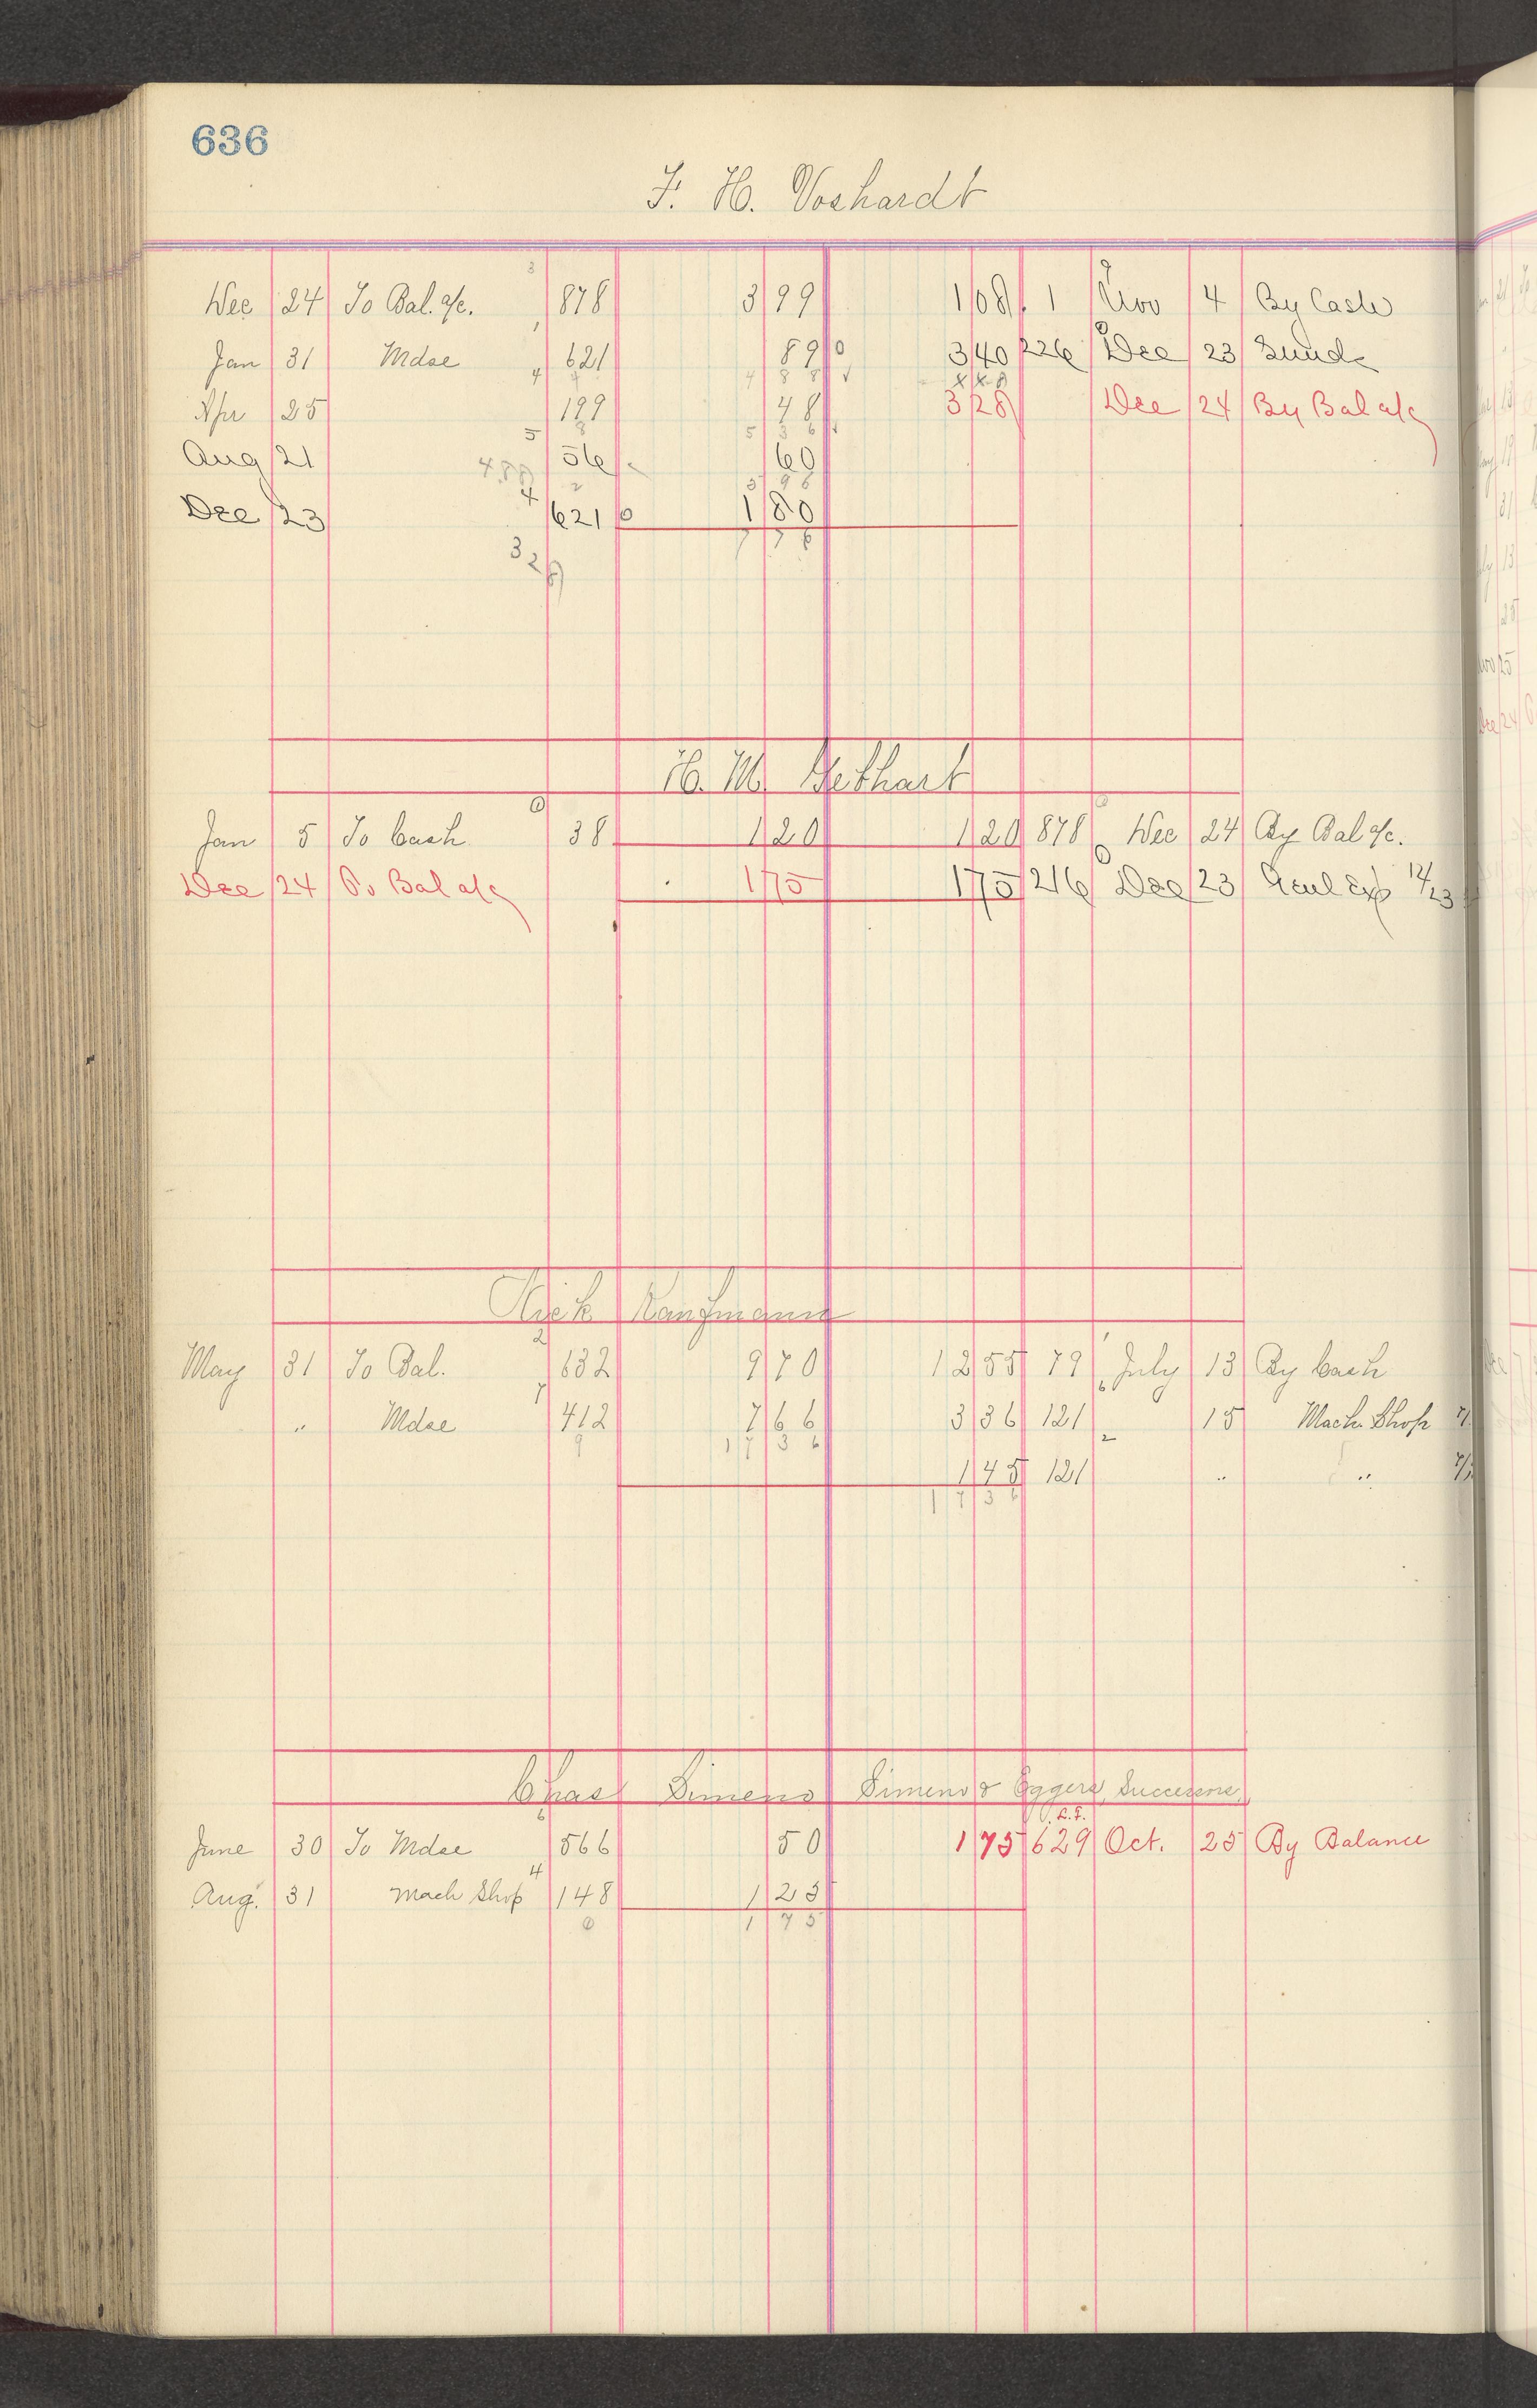 636
F. H. Voshardt
Dec 24 To Bal. a/c. 878 3 99 1 08 1 Nov 4 By Cash
Jan 31 Mdse 621 89 3 40 226 Dec 23 Sunds
4 88 448
Apr 25 199 48 3 28 Dec 24 By Bal a/c
5 36
Aug 21 56 60
4.88 5 96
Dec 23 621 1 80
7 76
328
H. M. Gethart
Jan 5 To Cash 38 1 20 1 20 878 Dec 24 By Bal a/c.
Dec 24 To Bal a/c 1 75 1 75 216 Dec 23 Genl Exp 12/23
Nick Kaufmann
May 31 To Bal. 632 9 70 12 55 79 July 13 By Cash
" Mdse 412 7 66 3 36 121 15 Mach. Shop
17 36
1 45 121 " "
17 36
Chas Simens Simens & Eggers, Successors
L.F.
June 30 To Mdse 566 50 1 75 629 Oct. 25 By Balance
Aug. 31 Mach Shop 148 1 25
1 75